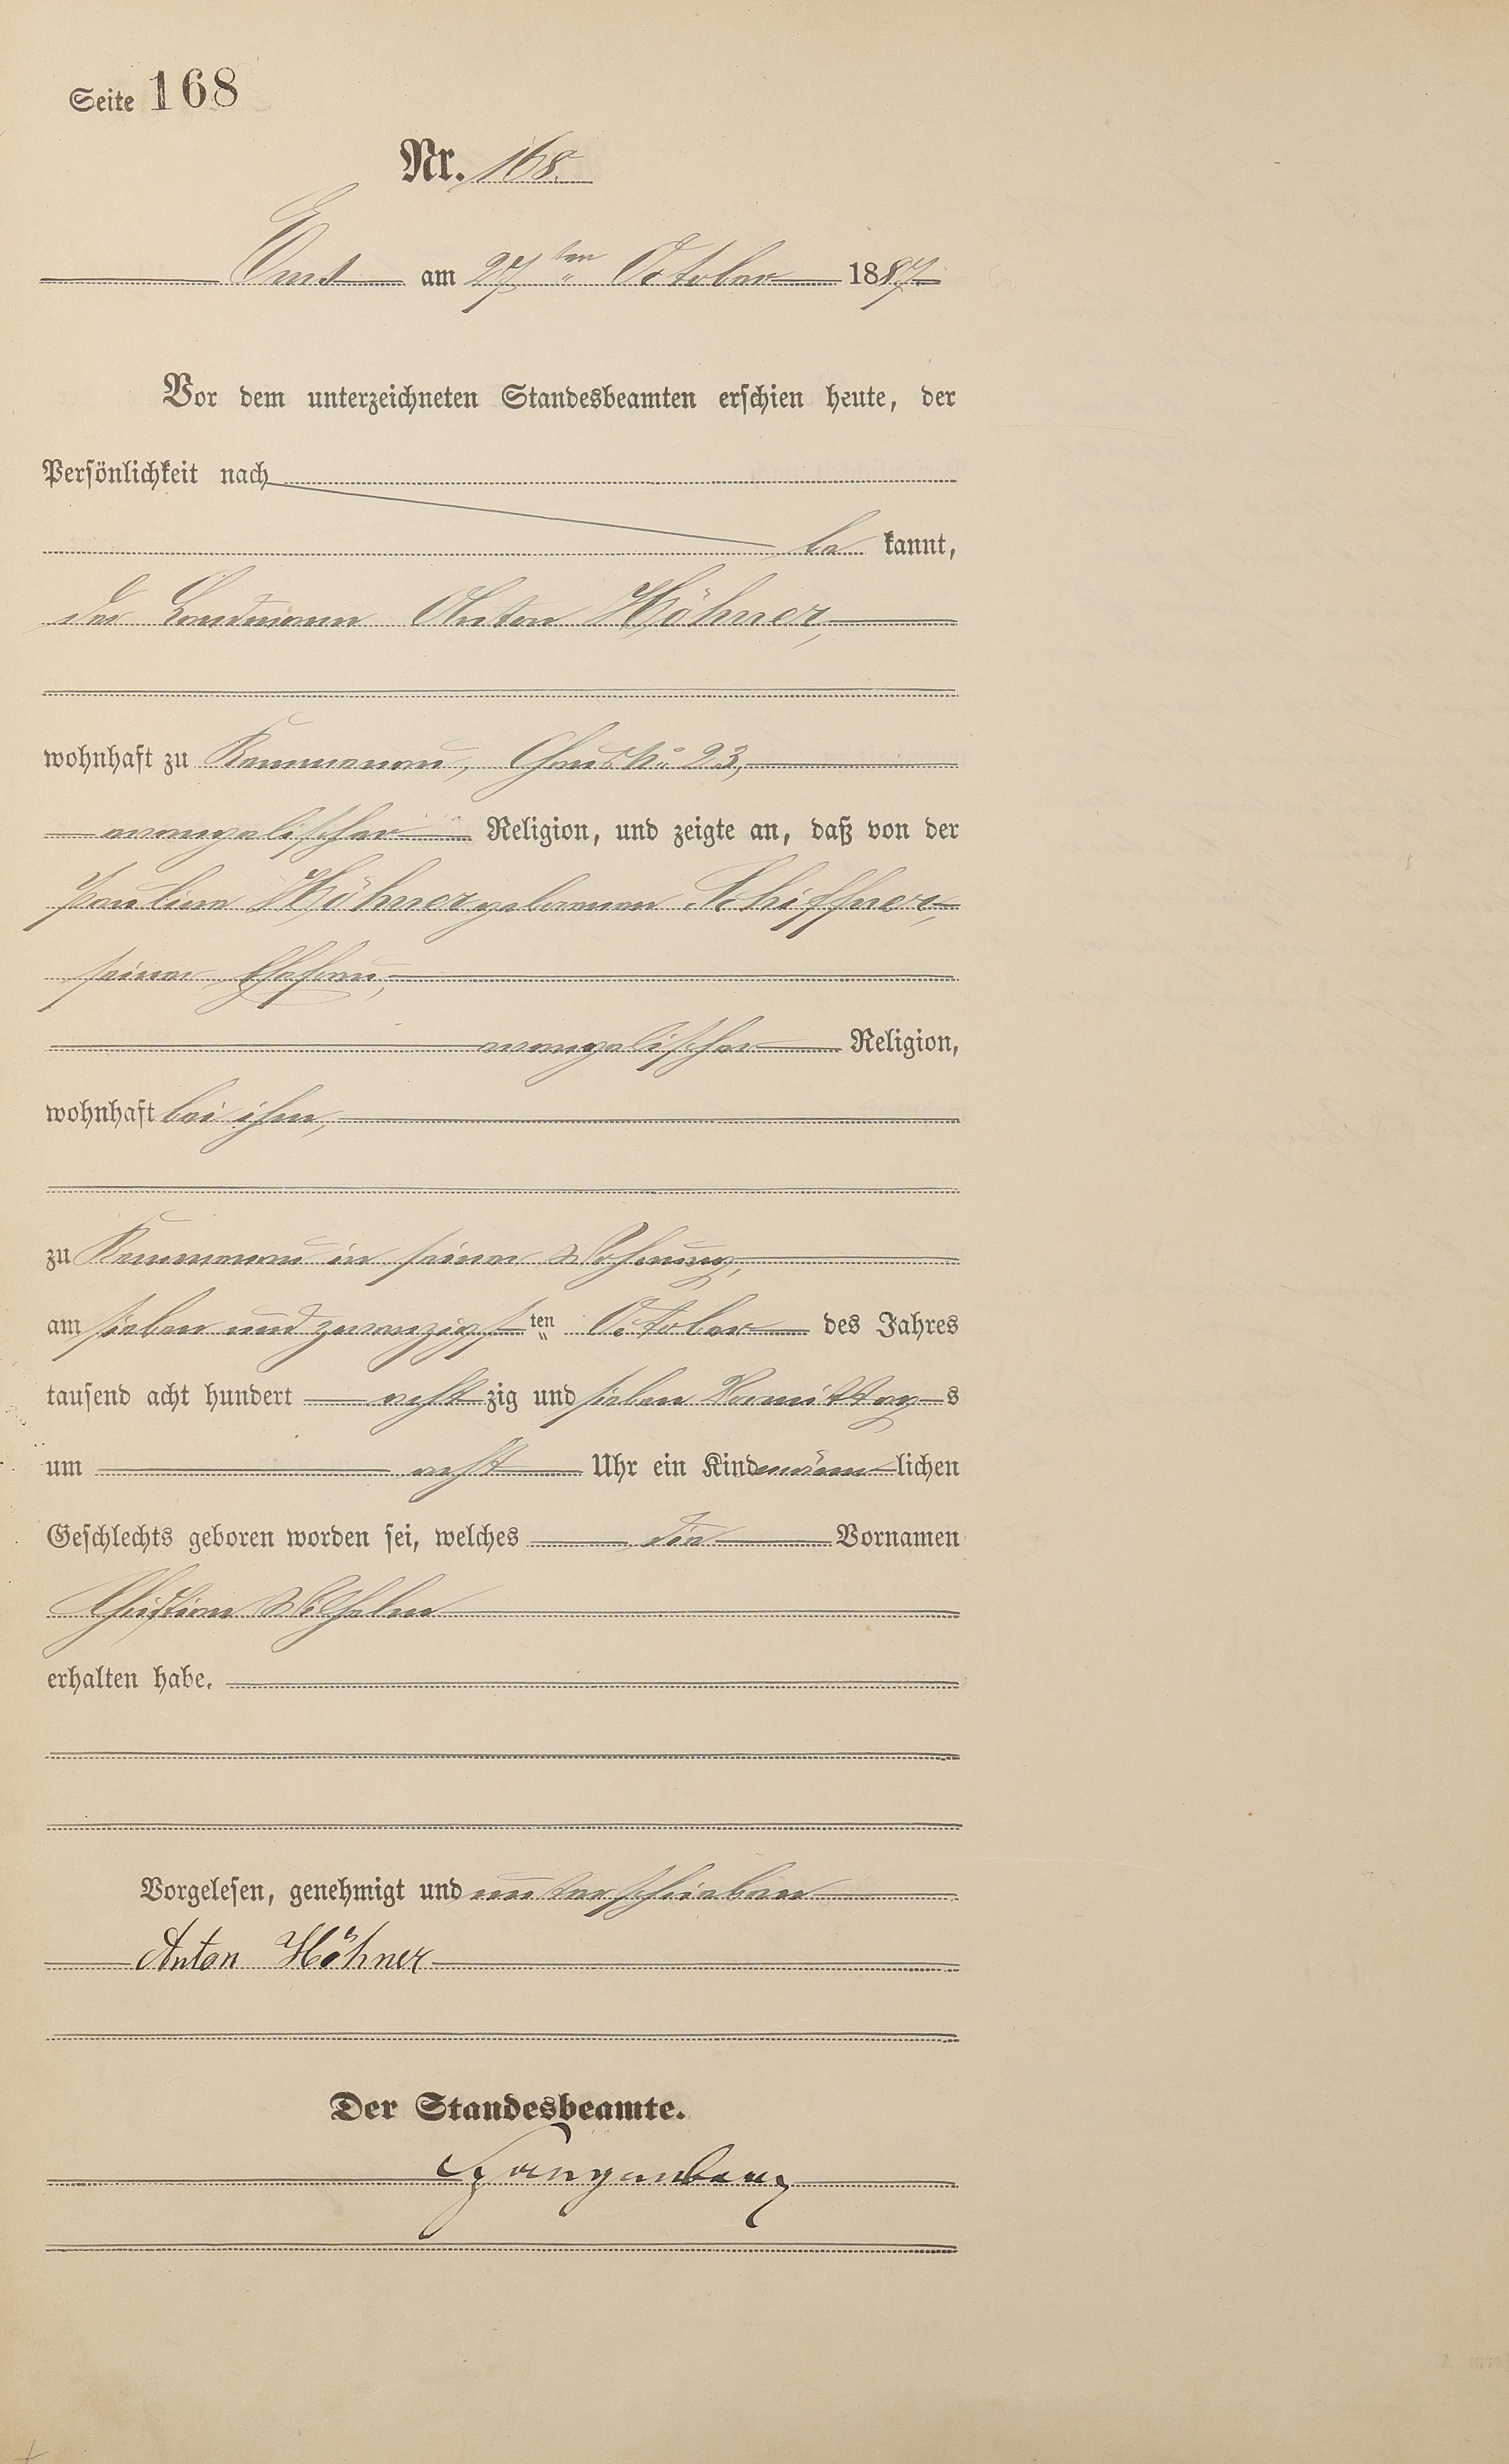 Seite 168
Nr. 168.
Ems am 27ten October 1887
Vor dem unterzeichneten Standesbeamten erschien heute, der
Persönlichkeit nach
be kannt,
der Landmann Anton Höhner,
wohnhaft zu Kemmenau, Haus No 23,
evangelischer Religion, und zeigte an, daß von der
Pauline Höhner geborenen Schiffner,
seiner Ehefrau,
evangelischer Religion,
wohnhaft bei ihm,
zu Kemmenau in seiner Wohnung,
am sieben und zwanzigsten October des Jahres
tausend acht hundert achtzig und sieben Vormittags
um acht Uhr ein Kind männlichen
Geschlechts geboren worden sei, welches die Vornamen
Christian Wilhelm
erhalten habe.
Vorgelesen, genehmigt und unterschrieben
Anton Höhner
Der Standesbeamte.